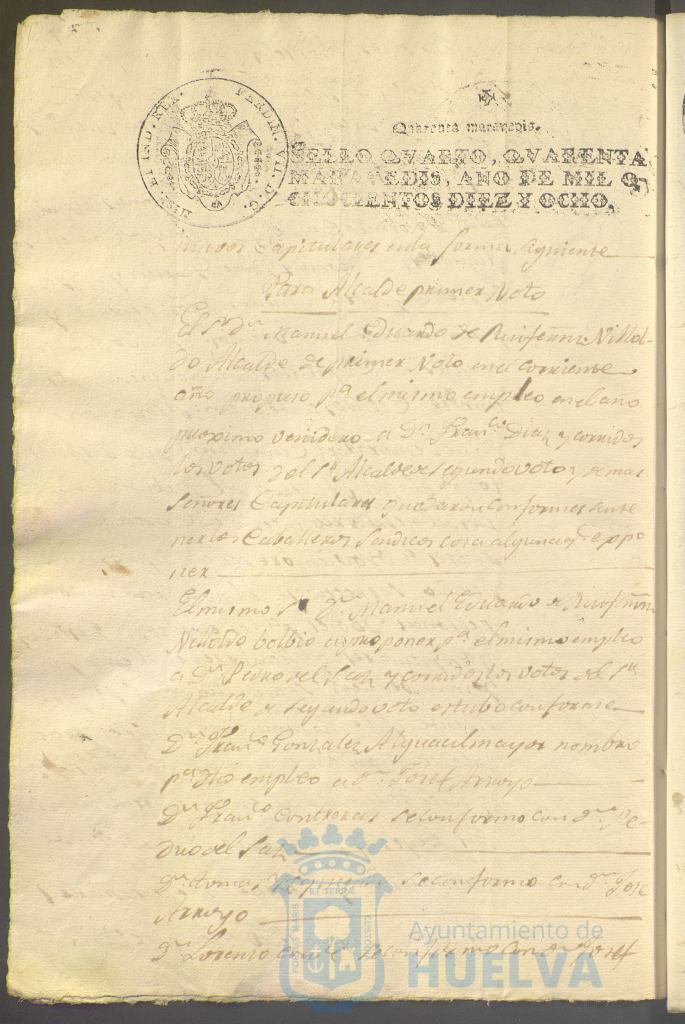 HISP. ET IND. REX. FERDIN. VII. D. G.
Quarenta maravedis.
SELLO QVARTO, QVARENTA
MARAVEDIS, AÑO DE MIL O
CHOCIENTOS DIEZ Y OCHO.
nuevos Capitulares en la forma siguiente
Para Alcalde primer Voto
El Sr. Dn. Manuel Eduardo de
do Alcalde de primer Voto en el corriente
año propuso pa. el mismo empleo en el año
proximo venidero a Dn. Franco. Diaz y corridos
los votos del Sr. Alcalde segundo voto y demas
señores Capitulares quedaron conformes sin te
ner los Caballeros Sindicos cosa alguna qe. expo
ner
El mismo Sr. Dn. Manuel Eduardo de
bolbio a proponer pa. el mismo empleo
a Dn. Pedro del Saz y corridos los votos del Sr.
Alcalde de segundo voto estubo conforme
Dn. Franco. Gonzalez Alguacil mayor nombro
pa. dho empleo a Dn. Josef Arroyo
Dn. Franco. Contreras se conformo con dn. Pe-
dro del Saz
Dn. se conformo con dn. Jose
Arroyo
Dn. Lorenzo se conformo con dn. Josef
PORTUS MARIS
ET TERRÆ
CUSTODIA
Ayuntamiento de
HUELVA